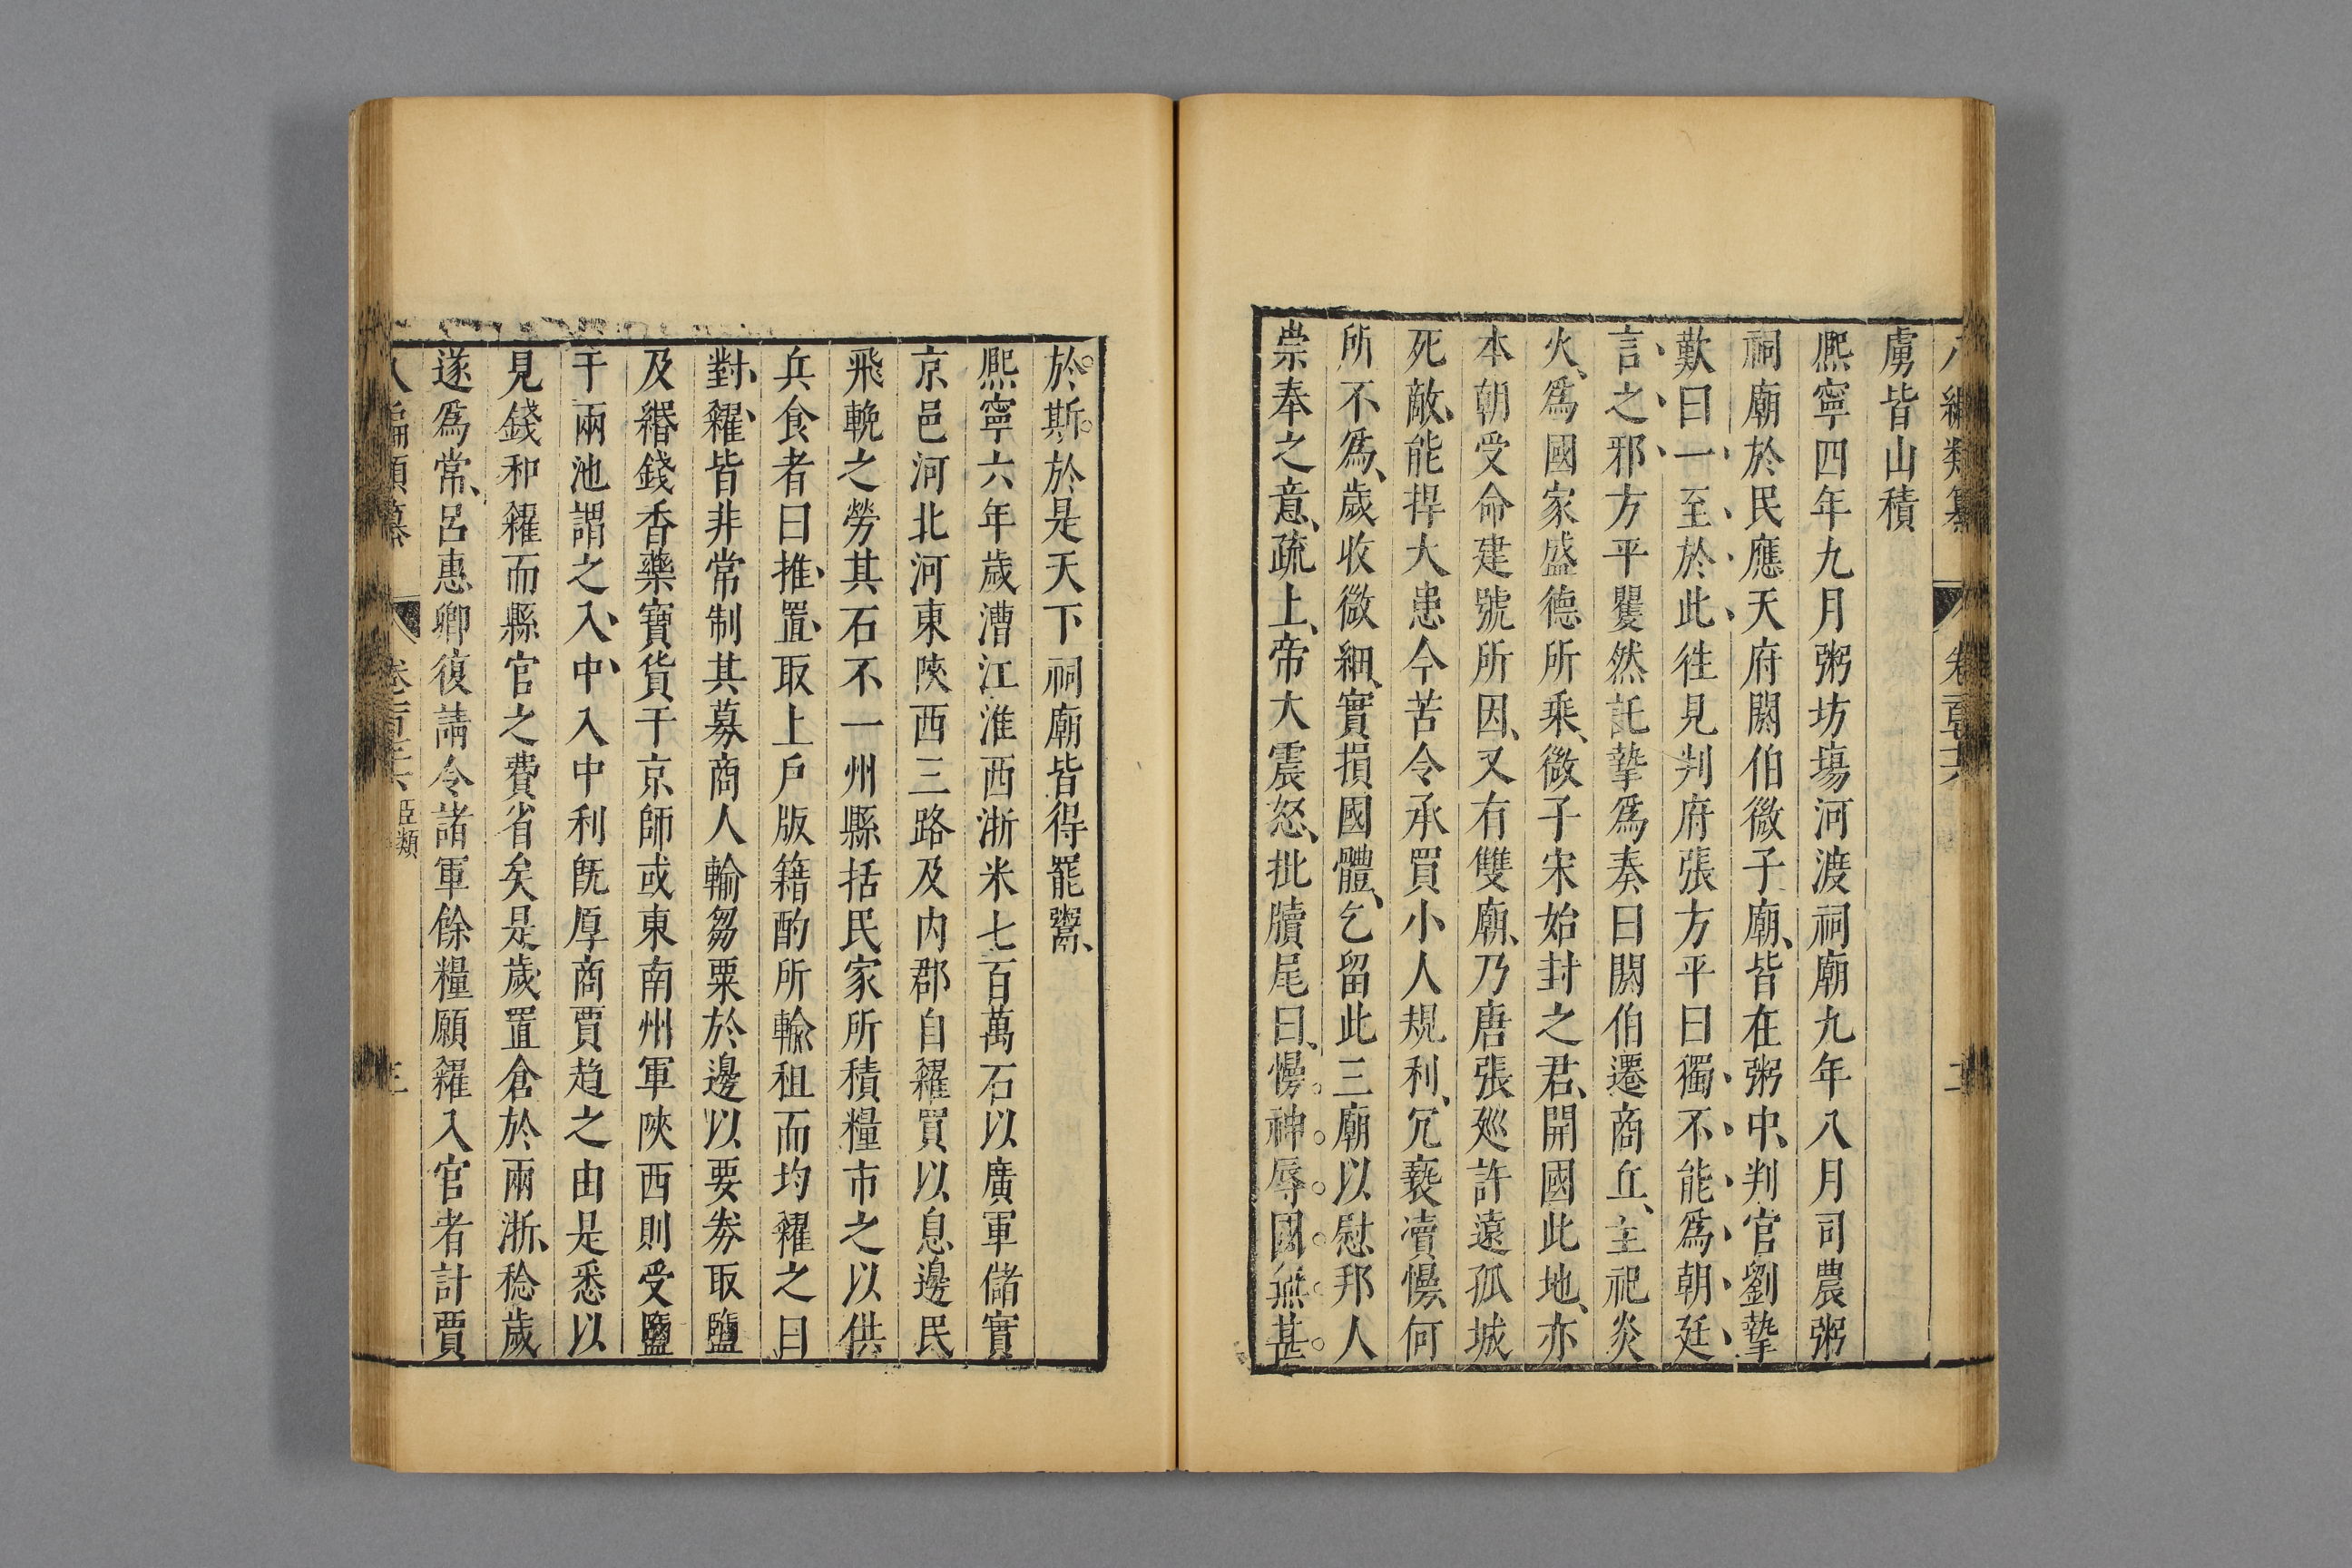 虜皆山積
熈寧四年九月粥坊場河渡祠廟九年八月司農粥
祠廟於民應天府閼伯微子廟、皆在粥中、判官劉摯
歎曰一至於此徃見判府張方平曰獨不能爲朝廷
言之邪方平矍然託摯爲奏曰閼伯遷商丘、主祀炎
火、爲國家盛德所乘、微子宋始封之君、開國此地、亦
本朝受命建號所因、又有雙廟、乃唐張廵許遠孤城
死敵、能捍大患今苦令承買小人規利、冗褻瀆慢、何
所不爲、歲收微細、實損國體、乞留此三廟以慰邦人
崇奉之意、疏上、帝大震怒、批牘尾曰、慢神辱國無甚
於斯於是天下祠廟皆得罷鬻、
熈寧六年歲漕江淮西浙米七百萬石以廣軍儲實
京邑河北河東陝西三路及内郡自糴買以息邊民
飛輓之勞其石不一州縣括民家所積糧市之以供
兵食者曰推、置、取上戶版籍酌所輸租而均糴之曰
對、糴、皆非常制其募商人輸芻粟於邊以要劵取鹽
及緡錢香藥寶貨于京師或東南州軍陝西則受鹽
于兩池謂之入、中、入中利旣厚商賈趋之由是悉以
見錢和糴而縣官之費省矣是歲置倉於兩浙、稔歲
遂爲常、呂惠卿復請令諸軍餘糧願糴入官者計賈